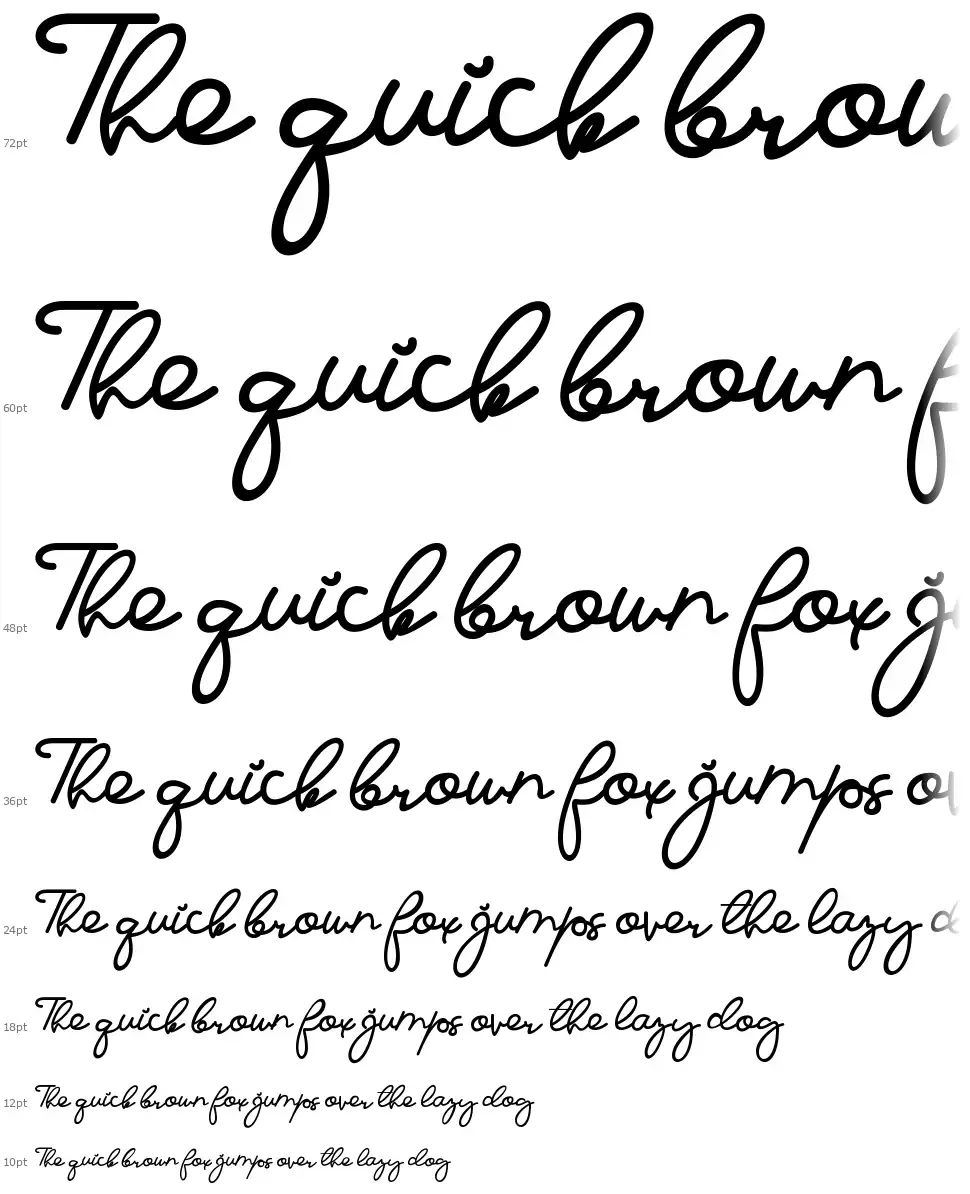 72pt The quick brow
60pt The quick brown f
48pt The quick brown fox j
36pt The quick brown fox jumps ov
24pt The quick brown fox jumps over the lazy d
18pt The quick brown fox jumps over the lazy dog
12pt The quick brown fox jumps over the lazy dog
10pt The quick brown fox jumps over the lazy dog